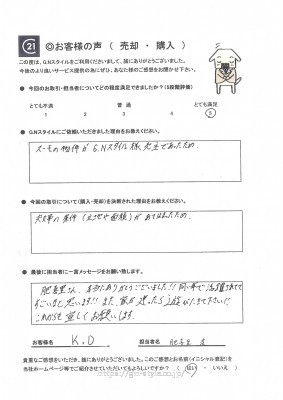 21 ◎お客様の声 ( 売却 ・ 購入 )
この度は、G.Nスタイルをご利用くださいまして、誠にありがとうございました。
今後のより良いサービス提供の為にぜひ、あなた様のご感想をお聞かせ下さい。
● 今回のお取引・担当者についてどの程度満足できましたか？(5段階評価)
とても不満 普通 とても満足
1 2 3 4 5
● G.Nスタイルにご依頼いただきました理由をお教えください。
スーモの物件がG.Nスタイル様
● 今回の取引について（購入・売却）を決断された理由をお教えください。
の条件（立地や面積）があてはまったため。
● 最後に担当者に一言メッセージをお願い致します。
さん、ありがとうございました!!
すごいなと思います!! また、家が建ったら遊びに来て下さい!!
これからも宜しくお願いします。
お客様名 K.O 担当者名
貴重なご感想をいただき、誠にありがとうございました。このご感想とお名前(イニシャル表記)を
当社ホームページ等でご紹介させていただいてもよろしいですか？ ( はい ・ いいえ )